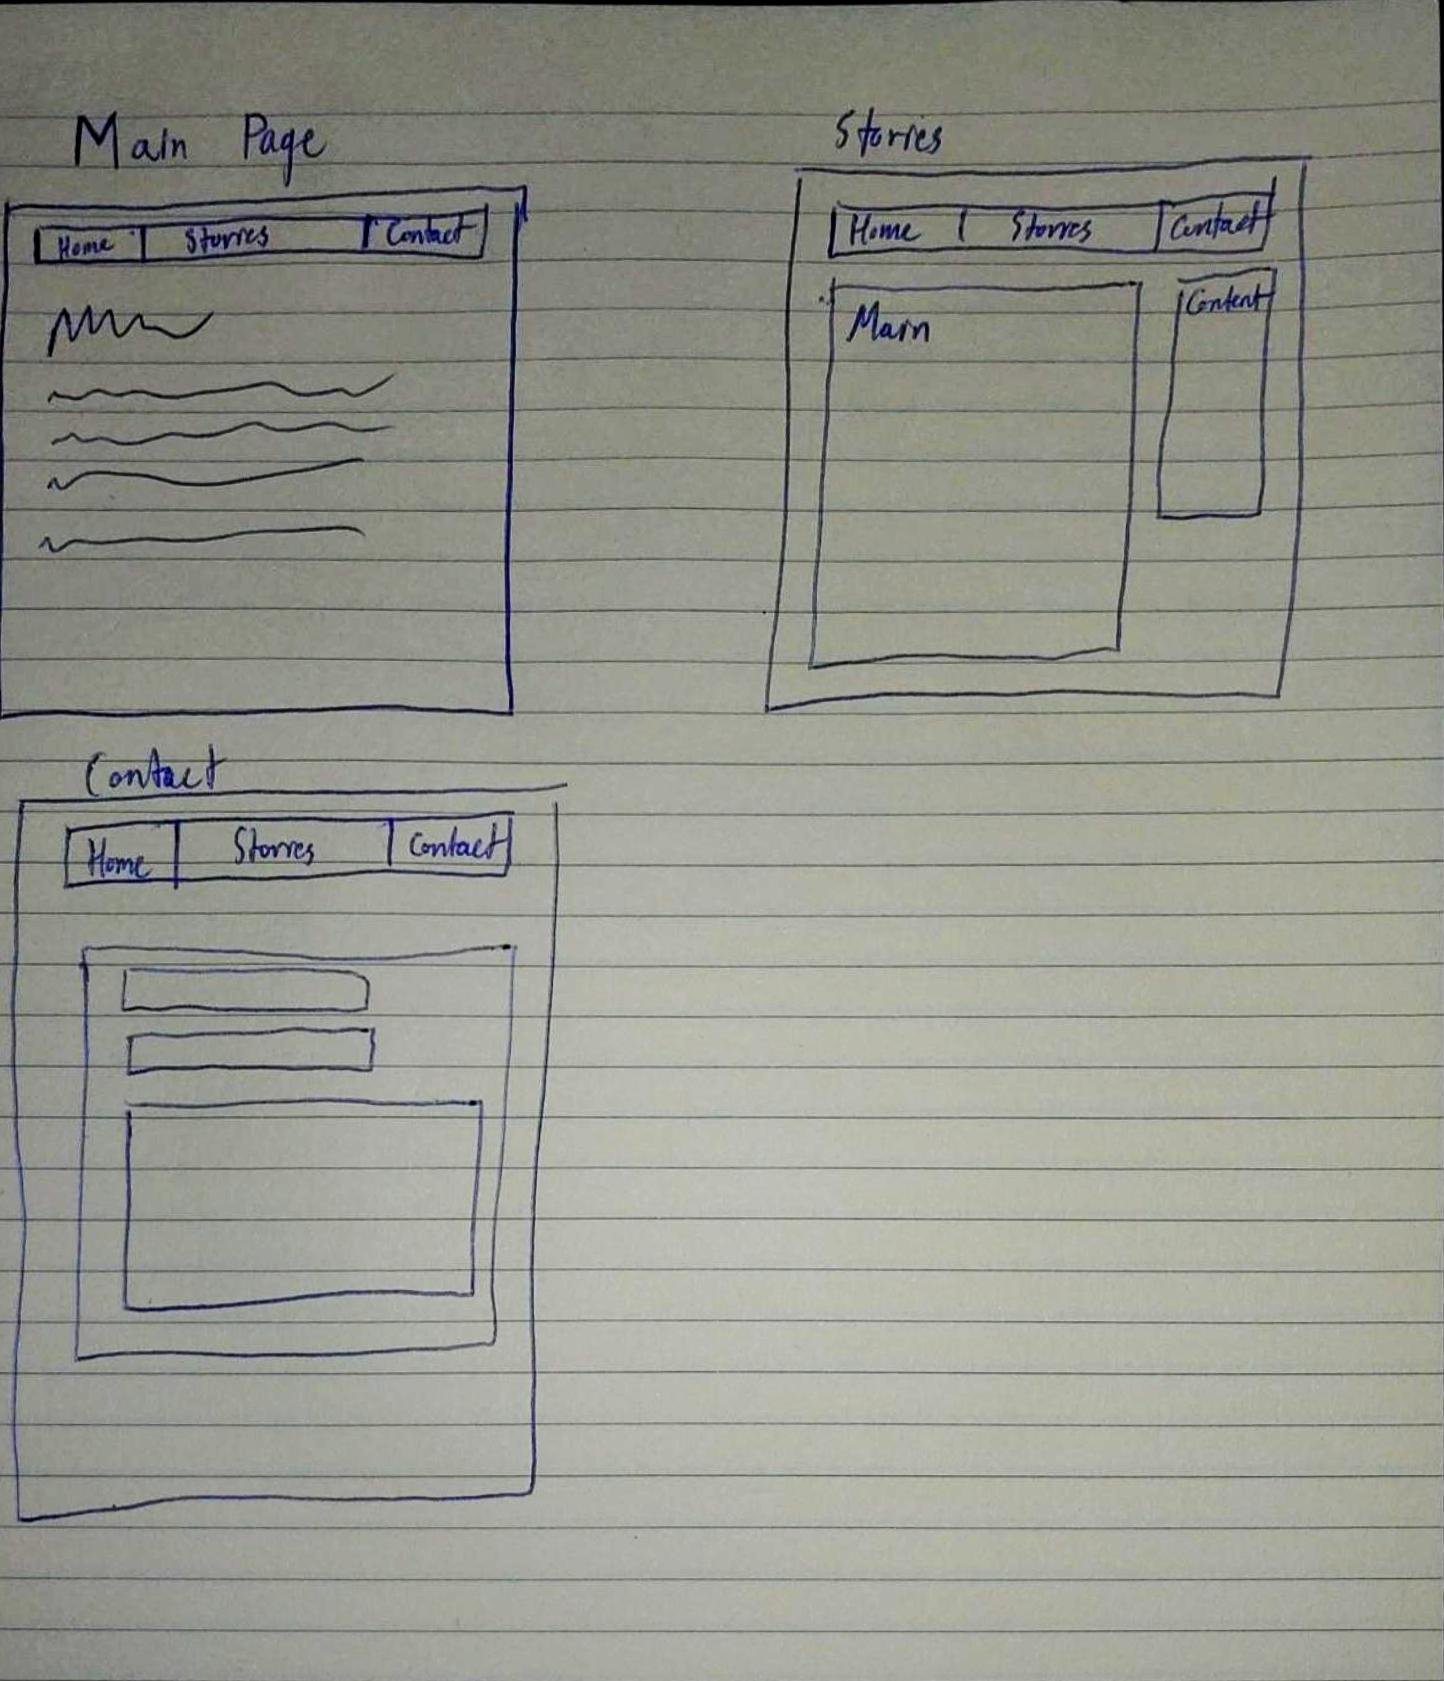 Main Page
Home Stories Contact
Stories
Home Stories Contact
Main
Content
Contact
Home Stories Contact